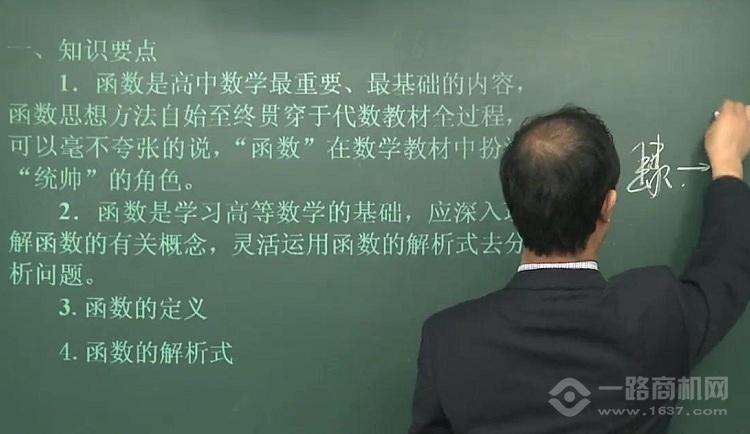 一、知识要点
1. 函数是高中数学最重要、最基础的内容，
函数思想方法自始至终贯穿于代数教材全过程，
可以毫不夸张的说，“函数”在数学教材中扮
“统帅”的角色。
2. 函数是学习高等数学的基础，应深入
解函数的有关概念，灵活运用函数的解析式去分
析问题。
3. 函数的定义
4. 函数的解析式
一路商机网
www.1637.com